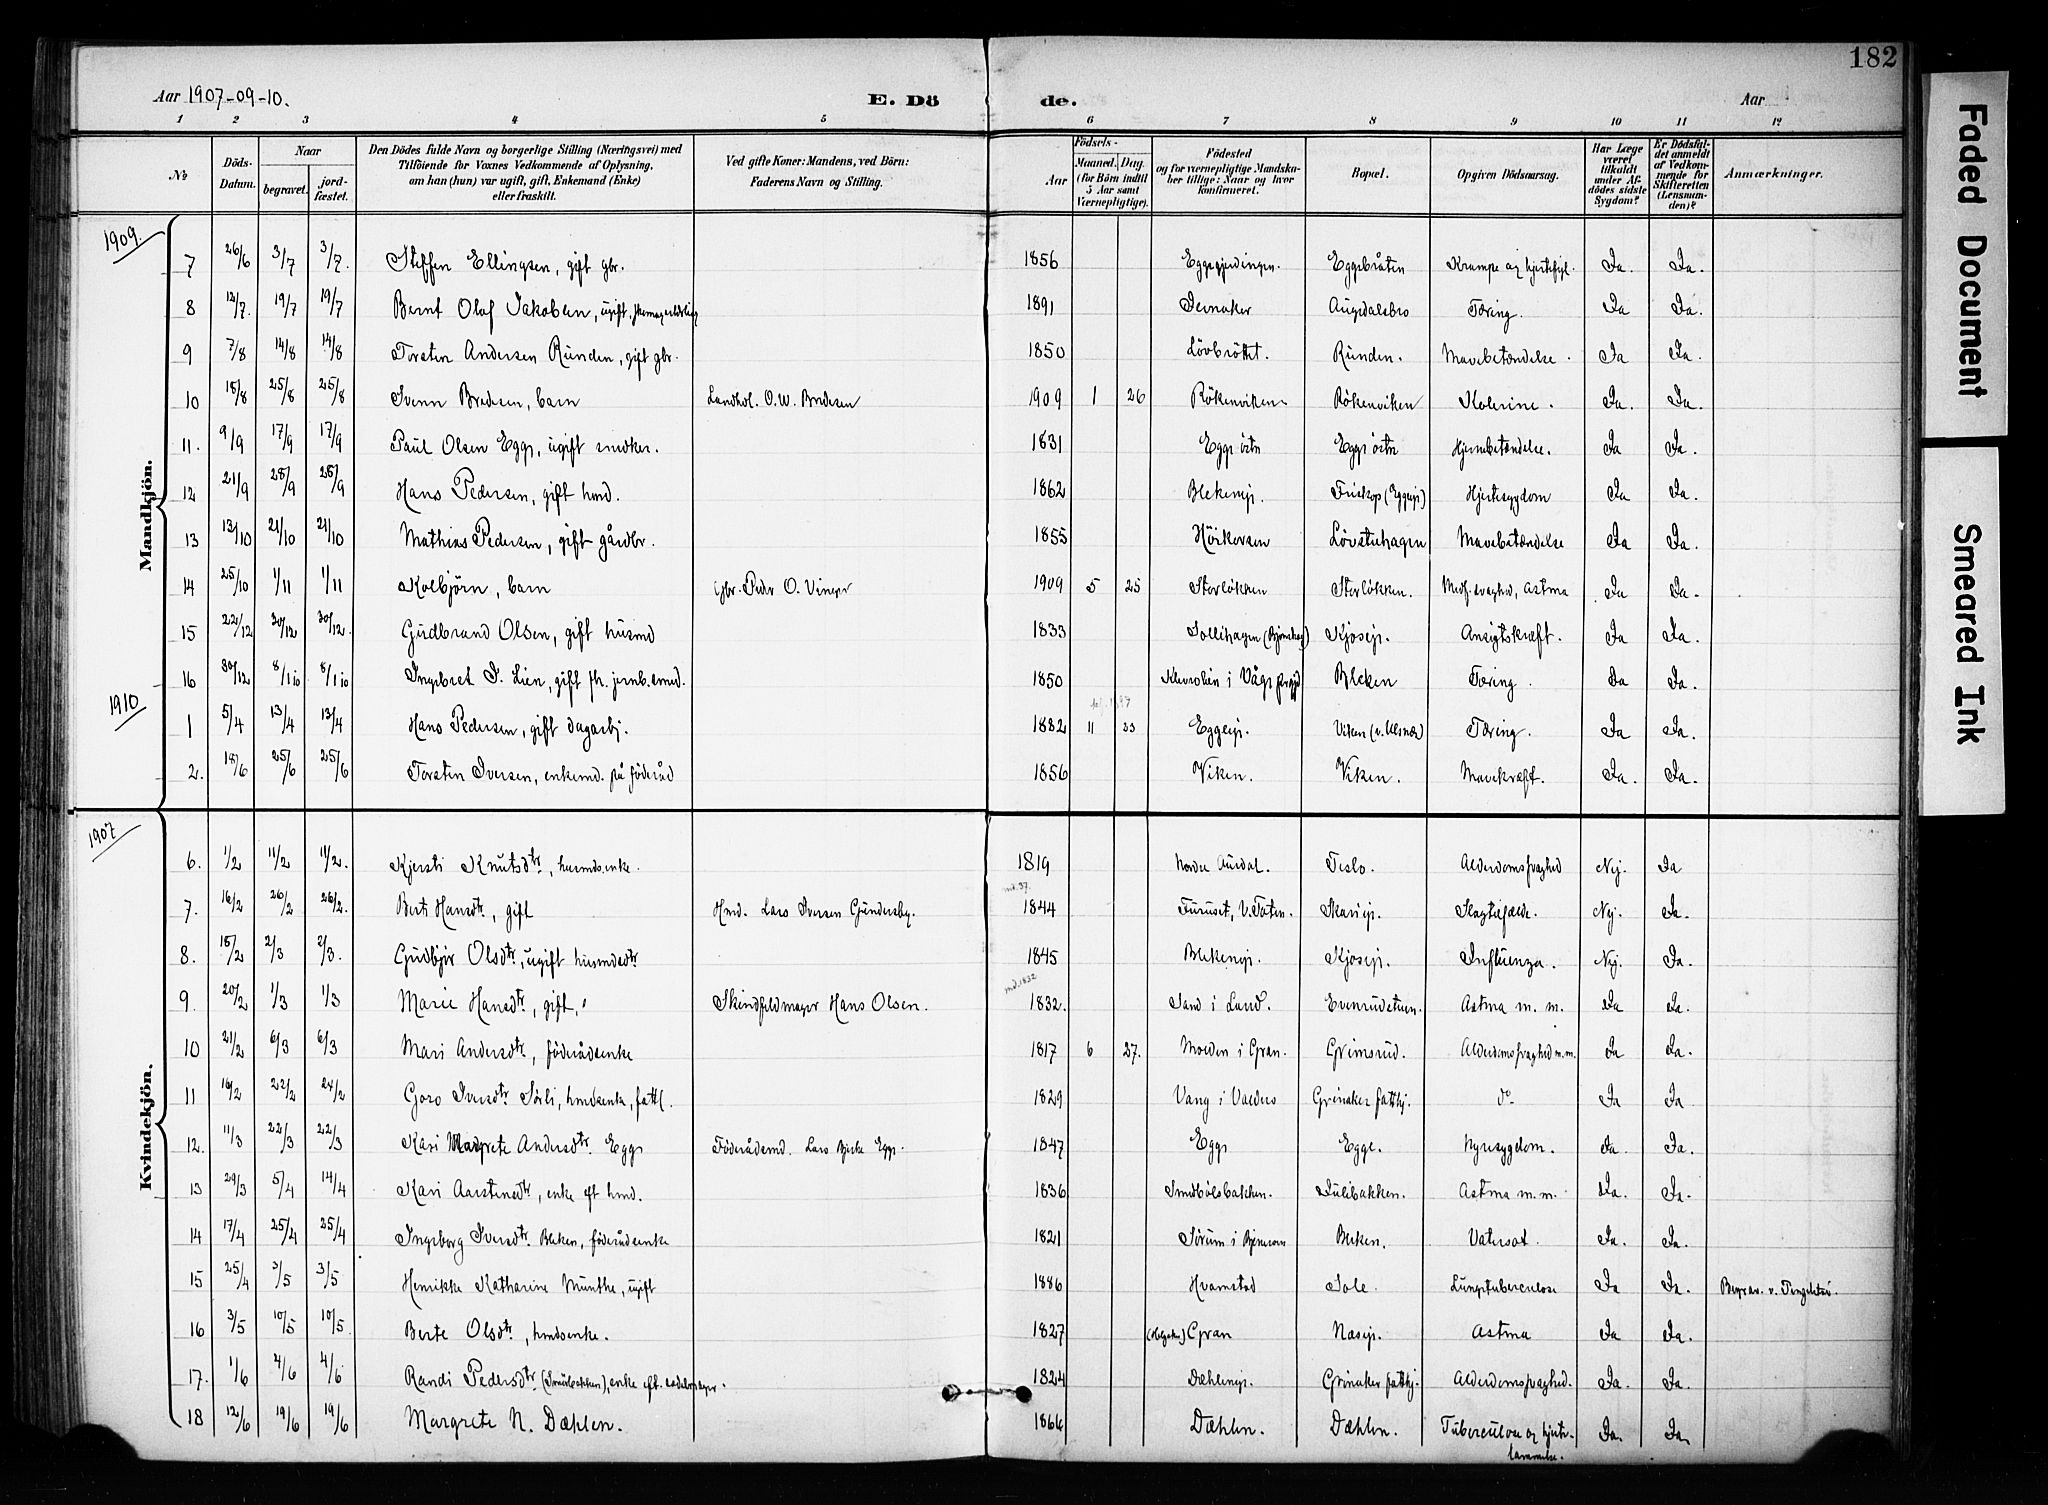 182
Aar 1907-09-10.
E. Dö
de.
Aar
1 2 3 4 5 6 7 8 9 10 11 12
№
Döds-Datum.
Naar
begravet.
jord-fæstet.
Den Dödes fulde Navn og borgerlige Stilling (Næringsvei) med
Tilföiende for Voxnes Vedkommende af Oplysning,
om han (hun) var ugift, gift, Enkemand (Enke)
eller fraskilt.
Ved gifte Koner: Mandens, ved Börn:
Faderens Navn og Stilling.
Födsels-
Aar
Maaned.
Dag.
(for Börn indtil
5 Aar samt
Værnepligtige).
Födested
og for værnepligtige Mandska-
ber tillige: Naar og hvor
konfirmeret.
Bopæl.
Opgiven Dödsaarsag.
Har Læge
været
tilkaldt
under Af-
dödes sidste
Sygdom?
Er Dödsfal-
det anmeldt
af Vedkom-
mende for
Skifteretten
(Lensman-
den)?
Anmærkninger.
Mandkjön.
1909.
7 26/6 3/7 3/7. Steffen Ellingsen, gift gbr. 1856 Eggebråten Krampe og hjertefejl. Ja. Ja.
8 12/7. 19/7 19/7 Bernt Olof Jakobsen, ugift, 1891 Augedalsbro Tæring. Ja Ja.
9 7/8 14/8 14/8 Torsten Andersen Runden, gift gbr. 1850 Lövbröttet. Runden. Mavebetændelse. Ja Ja.
10 18/8 25/8 25/8 Svenn Bredesen, barn Landhol. O. W. Bredesen 1909 1 26 Rökenviken Rökenviken Kolerine. Ja. Ja.
11. 9/9 17/9 17/9 Paul Olsen Egge, ugift snedker. 1831 Egge östn Egge östn Hjernebetændelse. Ja Ja.
12 21/9 28/9 28/9 Hans Pedersen, gift hmd. 1862 Blekenej. Hjertesygdom Ja Ja.
13 13/10 21/10 21/10 Mathias Pedersen, gift gårdbr. 1855 Höikorsen Lövstuhagen Mavebetændelse Ja Ja.
14 25/10 1/11 1/11 Kolbjörn, barn gbr. Peder O. Vinger 1909 5 25 Storlökken Storlökken. Medf. svaghed, Astma Ja Ja.
15 22/12 30/12 30/12. Gudbrand Olsen, gift husmd 1833 Sollihagen Kjosejr. Ansigtskræft. Ja Ja.
16 30/12 8/1 10 8/1 10 Ingebret I. Lien, gift fh. jernb.arb. 1850 i Våge Bleken Tæring. Ja Ja.
1910
1 5/4 13/4 13/4 Hans Pedersen, gift dagarbj. 1882 11 23 Eggeejr. Viken Tæring. Ja Ja.
2. 18/6 25/6 25/6 Torsten Iversen, enkemd. på föderåd 1856 Viken. Viken. Mavekræft. Ja. Ja.
Kvindekjön.
1907
6. 1/2 11/2 11/2. Kjersti Knutsdtr, husmdsenke. 1819 Nordre Aurdal. Teslo. Alderdomssvaghed Nej. Ja
7. 16/2 26/2 26/2. Berte Hansdtr, gift Hmd. Lars Iversen Gundersby. 1844 Furuset, V. Toten. Skariejr. Slagtilfælde. Nej. Ja.
8. 18/2 2/3 2/3. Gudbjör Olsdtr, ugift husmdsdtr 1845 Blekenejr. Kjosejr. Influenza. Nej. Ja.
9. 20/2 1/3 1/3 Marie Hansdtr, gift, Skindfeldmager Hans Olsen. 1832. Sand i Land. Evenrudstuen. Astma m. m. Ja Ja.
10 21/2 6/3 6/3 Mari Andersdtr, föderådsenke 1817 6 27. Moen i Gran. Grimsrud. Alderdomssvaghed m.m. Ja Ja.
11 16/2 22/2 24/2 Goro Iversdtr. Sörli, hmdsenke, fattl. 1829 Vang i Valders Grinaker fattghj. do. Ja Ja
12. 11/3 22/3 22/3 Kari Margrete Andersdtr. Egge Föderådsmd. Lars Bjerke Egge. 1847 Egge Egge. Nyresygdom. Ja. Ja.
13 29/3 5/4 14/4 Kari Aarstensdtr, enke eft hmd. 1836 Smedbölsbakken. Julibakken. Astma m.m. Ja. Ja.
14 17/4 25/4 25/4 Ingeborg Iversdtr. Bleken, föderådsenke 1821 Sörum i Bjoneroa Bleken. Vatersot. Ja. Ja.
15 25/4 3/5 3/5 Henrikke Katharine Munthe, ugift 1886 Hvamstad Sole. Lungetuberculose Ja Ja. Begrav. v. Tingelstad.
16 3/5 10/5 10/5 Berte Olsdtr, hmdsenke. 1827 Gran Næsejr. Astma Ja Ja.
17. 1/6 4/6 4/6 Randi Pedersdtr (Smedbakken), enke eft. sadelmager. 1824 Dæhlinejr. Grinaker fattghj. Alderdomssvaghed. Ja. Ja.
18 12/6 19/6 19/6 Margrete N. Dæhlen. 1866 Dæhlen. Dæhlen. Tuberculose og hjerte-
lammelse. Ja. Ja.
Faded Document
Smeared Ink